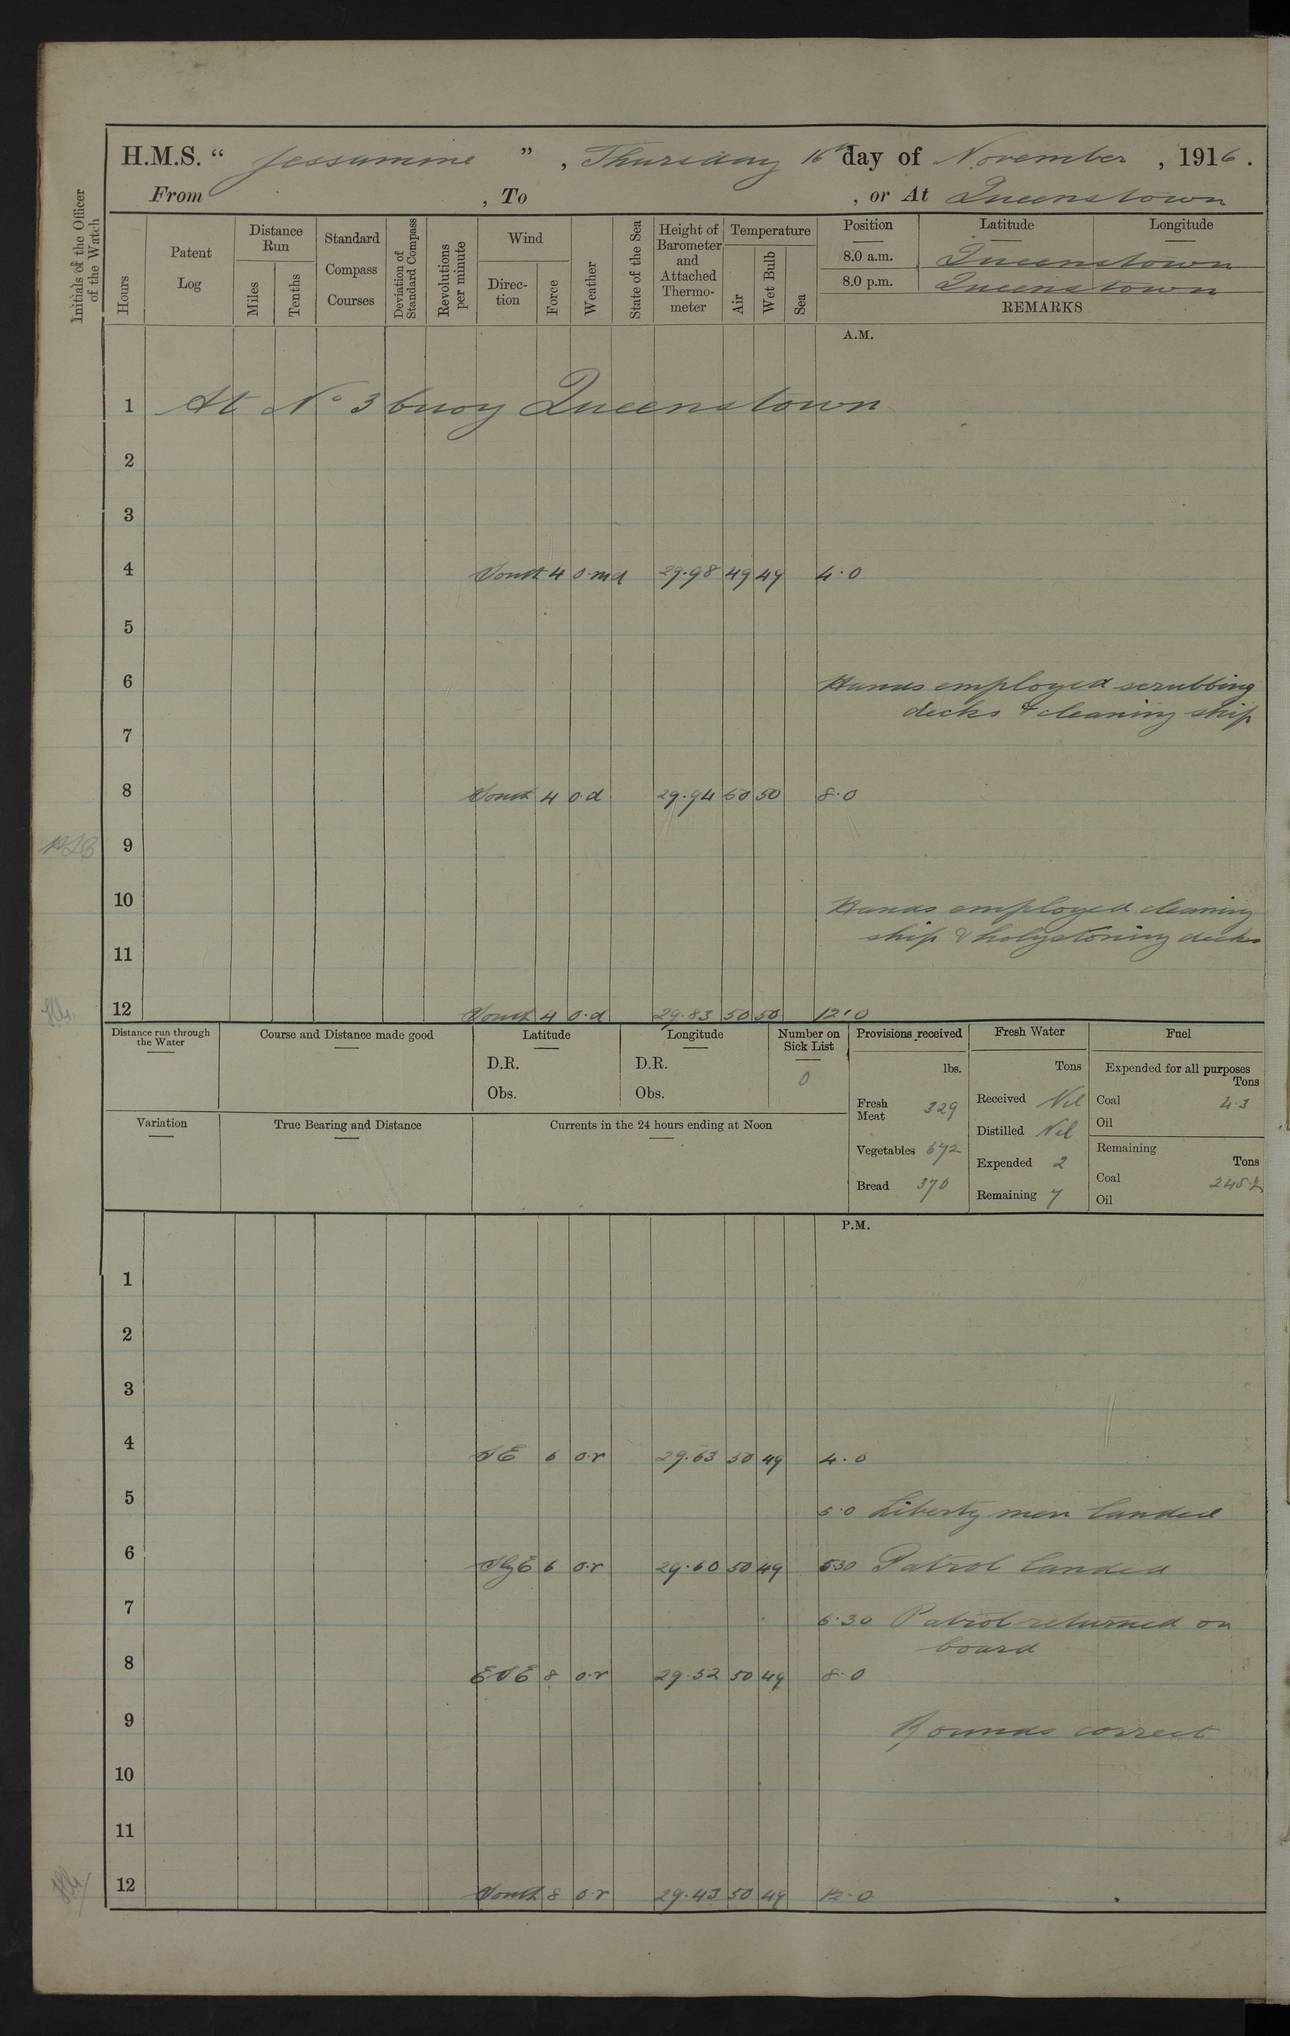 H.M.S. " Jessamine " , Thursday 16th day of November , 1916 .
From , To , or At Queenstown
Initials of the Officer of the Watch
Hours
Patent Log
Distance Run
Miles
Tenths
Standard Compass Courses
Deviation of Standard Compass
Revolutions per minute
Wind
Direc-tion
Force
Weather
State of the Sea
Height of Barometer and Attached Thermo-meter
Temperature
Air
Wet Bulb
Sea
Position Latitude Longitude
8.0 a.m. Queenstown
8.0 p.m. Queenstown
REMARKS
A.M.
1 At No 3 buoy Queenstown
2
3
4 South 4 o.m.d 29.98 49 49 4.0
5
6 Hands employed scrubbing
decks & cleaning ship
7
8 South 4 o.d 29.94 50 50 8.0
9
10 Hands employed cleaning
ship & holystoning decks
11
12 South 4 o.d 29.83 50 50 12.0
Distance run through the Water
Course and Distance made good
Latitude
D.R.
Obs.
Longitude
D.R.
Obs.
Number on Sick List
0
Provisions received
lbs.
Fresh Meat 329
Vegetables 672
Bread 376
Fresh Water
Tons
Received Nil
Distilled Nil
Expended 2
Remaining 7
Fuel
Expended for all purposes
Tons
Coal 4.3
Oil
Remaining
Tons
Coal 245.2
Oil
Variation
True Bearing and Distance
Currents in the 24 hours ending at Noon
P.M.
1
2
3
4 SE 6 o.r 29.63 50 49 4.0
5 5.0 Liberty men landed
6 SbyE 6 o.r 29.60 50 49 5.30 Patrol landed
7 6.30 Patrol returned on
board
8 ESE 8 o.r 29.52 50 49 8.0
9 Rounds correct
10
11
12 South 8 o.r 29.43 50 49 12.0